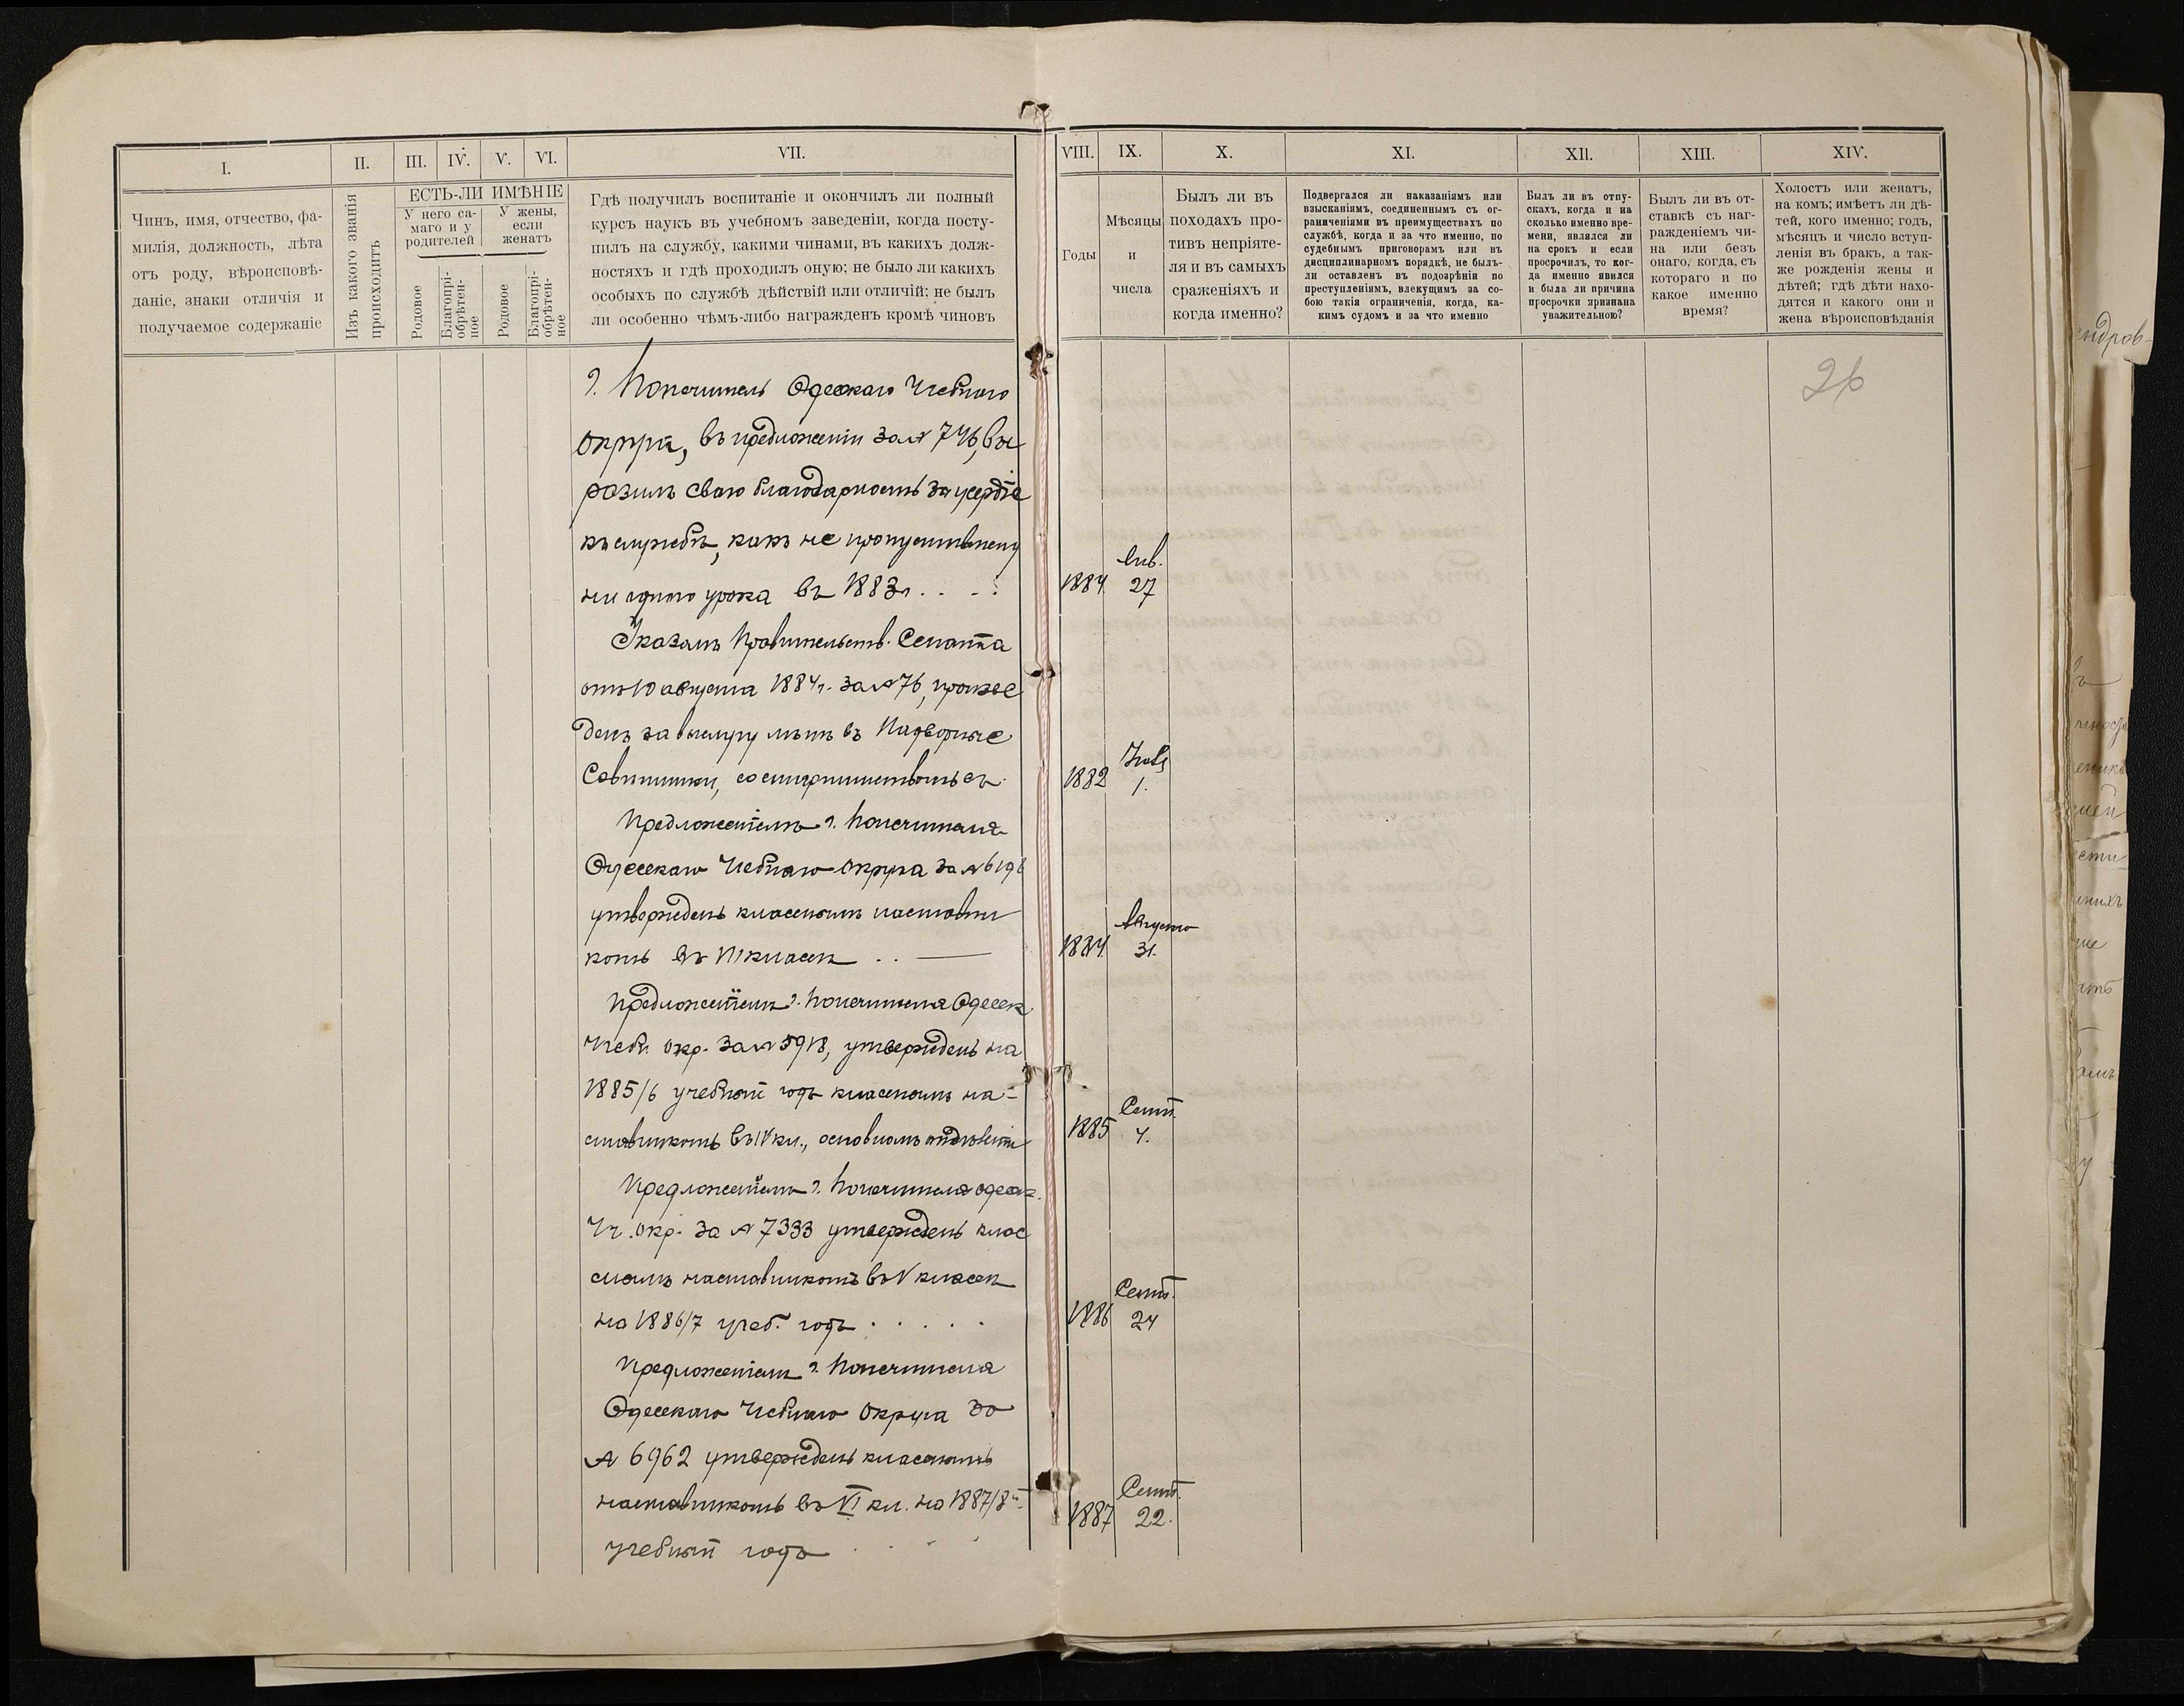 I.
II.
III.
IV.
V.
VI.
VII.
VIII.
IX.
X.
XI.
XII.
XIII.
XIV.
Чинъ, имя, отчество, фа-
милія, должность, лѣта
отъ роду, вѣроисповѣ-
даніе, знаки отличія и
получаемое содержаніе
Изъ какого званія
происходитъ
ЕСТЬ-ЛИ ИМѢНІЕ
У него са-
маго и у
родителей
У жены,
если
женатъ
Родовое
Благопрі-
обрѣтен-
ное
Родовое
Благопрі-
обрѣтен-
ное
Гдѣ получилъ воспитаніе и окончилъ ли полный
курсъ наукъ въ учебномъ заведеніи, когда посту-
пилъ на службу, какими чинами, въ какихъ долж-
ностяхъ и гдѣ проходилъ оную; не было ли какихъ
особыхъ по службѣ дѣйствій или отличій; не былъ
ли особенно чѣмъ-либо награжденъ кромѣ чиновъ
Годы
Мѣсяцы
и
числа
Былъ ли въ
походахъ про-
тивъ непріяте-
ля и въ самыхъ
сраженіяхъ и
когда именно?
Подвергался ли наказаніямъ или
взысканіямъ, соединеннымъ съ ог-
раниченіями въ преимуществахъ по
службѣ, когда и за что именно, по
судебнымъ приговорамъ или въ
дисциплинарномъ порядкѣ, не былъ-
ли оставленъ въ подозрѣніи по
преступленіямъ, влекущимъ за со-
бою такія ограниченія, когда, ка-
кимъ судомъ и за что именно
Былъ ли въ отпу-
скахъ, когда и на
сколько именно вре-
мени, явился ли
на срокъ и если
просрочилъ, то ког-
да именно явился
и была ли причина
просрочки признана
уважительною?
Былъ ли въ от-
ставкѣ съ наг-
ражденіемъ чи-
на или безъ
онаго, когда, съ
котораго и по
какое именно
время?
Холостъ или женатъ,
на комъ; имѣетъ ли дѣ-
тей, кого именно; годъ,
мѣсяцъ и число вступ-
ленія въ бракъ, а так-
же рожденія жены и
дѣтей; гдѣ дѣти нахо-
дятся и какого они и
жена вѣроисповѣданія
26
Г. Попечитель Одесскаго Учебнаго
Округа, въ предложеніи за № 746, вы
разилъ свою благодарность за усердіе
къ службѣ, какъ не пропустившему
ни одного урока въ 1883 г. . . .
1884 Янв. 27
Указомъ Правительств. Сената
отъ 10 августа 1884 г. за № 76, произве
денъ за выслугу лѣтъ въ Надворные
Совѣтники, со старшинствомъ съ
1882 1.
Предложеніемъ г. Попечителя
Одесскаго Учебнаго Округа за №
утвержденъ класснымъ наставни
комъ въ классѣ . .
1884 Августа 31.
Предложеніемъ г. Попечителя Одесск.
Учебн. окр. за № 5918, утвержденъ на
1885/6 учебный годъ класснымъ на-
ставникомъ въ IV кл., основномъ отдѣленіи
1885 Сент. 4.
Предложеніемъ г. Попечителя Одесск.
Уч. окр. за № 7333 утвержденъ клас
снымъ наставникомъ въ V классѣ
на 1886/7 учеб. годъ . . . . .
1886 Сент. 24
Предложеніемъ г. Попечителя
Одесскаго Учебнаго Округа за
№ 6962 утвержденъ класснымъ
наставникомъ въ VI кл. на 1887/8 й
учебный годъ . . . .
1887 Сент. 22.